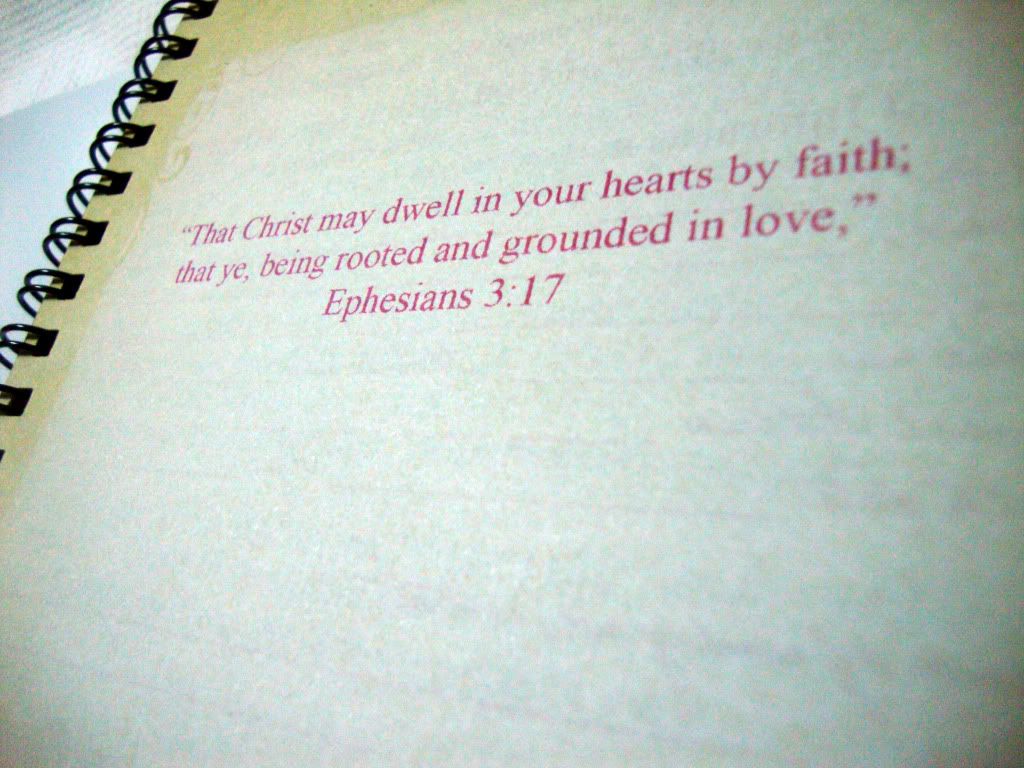 “That Christ may dwell in your hearts by faith;
that ye, being rooted and grounded in love,”
Ephesians 3:17